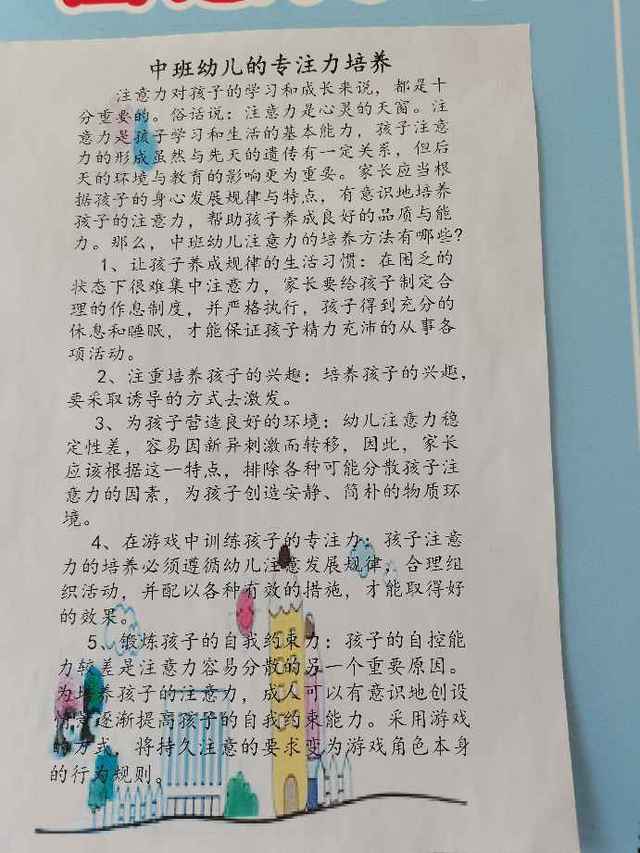 中班幼儿的专注力培养
注意力对孩子的学习和成长来说，都是十
分重要的。俗话说：注意力是心灵的天窗。注
意力是孩子学习和生活的基本能力，孩子注意
力的形成虽然与先天的遗传有一定关系，但后
天的环境与教育的影响更为重要。家长应当根
据孩子的身心发展规律与特点，有意识地培养
孩子的注意力，帮助孩子养成良好的品质与能
力。那么，中班幼儿注意力的培养方法有哪些?
1、让孩子养成规律的生活习惯：在困乏的
状态下很难集中注意力，家长要给孩子制定合
理的作息制度，并严格执行，孩子得到充分的
休息和睡眠，才能保证孩子精力充沛的从事各
项活动。
2、注重培养孩子的兴趣：培养孩子的兴趣，
要采取诱导的方式去激发。
3、为孩子营造良好的环境：幼儿注意力稳
定性差，容易因新异刺激而转移，因此，家长
应该根据这一特点，排除各种可能分散孩子注
意力的因素，为孩子创造安静、简朴的物质环
境。
4、在游戏中训练孩子的专注力：孩子注意
力的培养必须遵循幼儿注意发展规律，合理组
织活动，并配以各种有效的措施，才能取得好
的效果。
5、锻炼孩子的自我约束力：孩子的自控能
力较差是注意力容易分散的另一个重要原因。
为培养孩子的注意力，成人可以有意识地创设
情景逐渐提高孩子的自我约束能力。采用游戏
的方式，将持久注意的要求变为游戏角色本身
的行为规则。